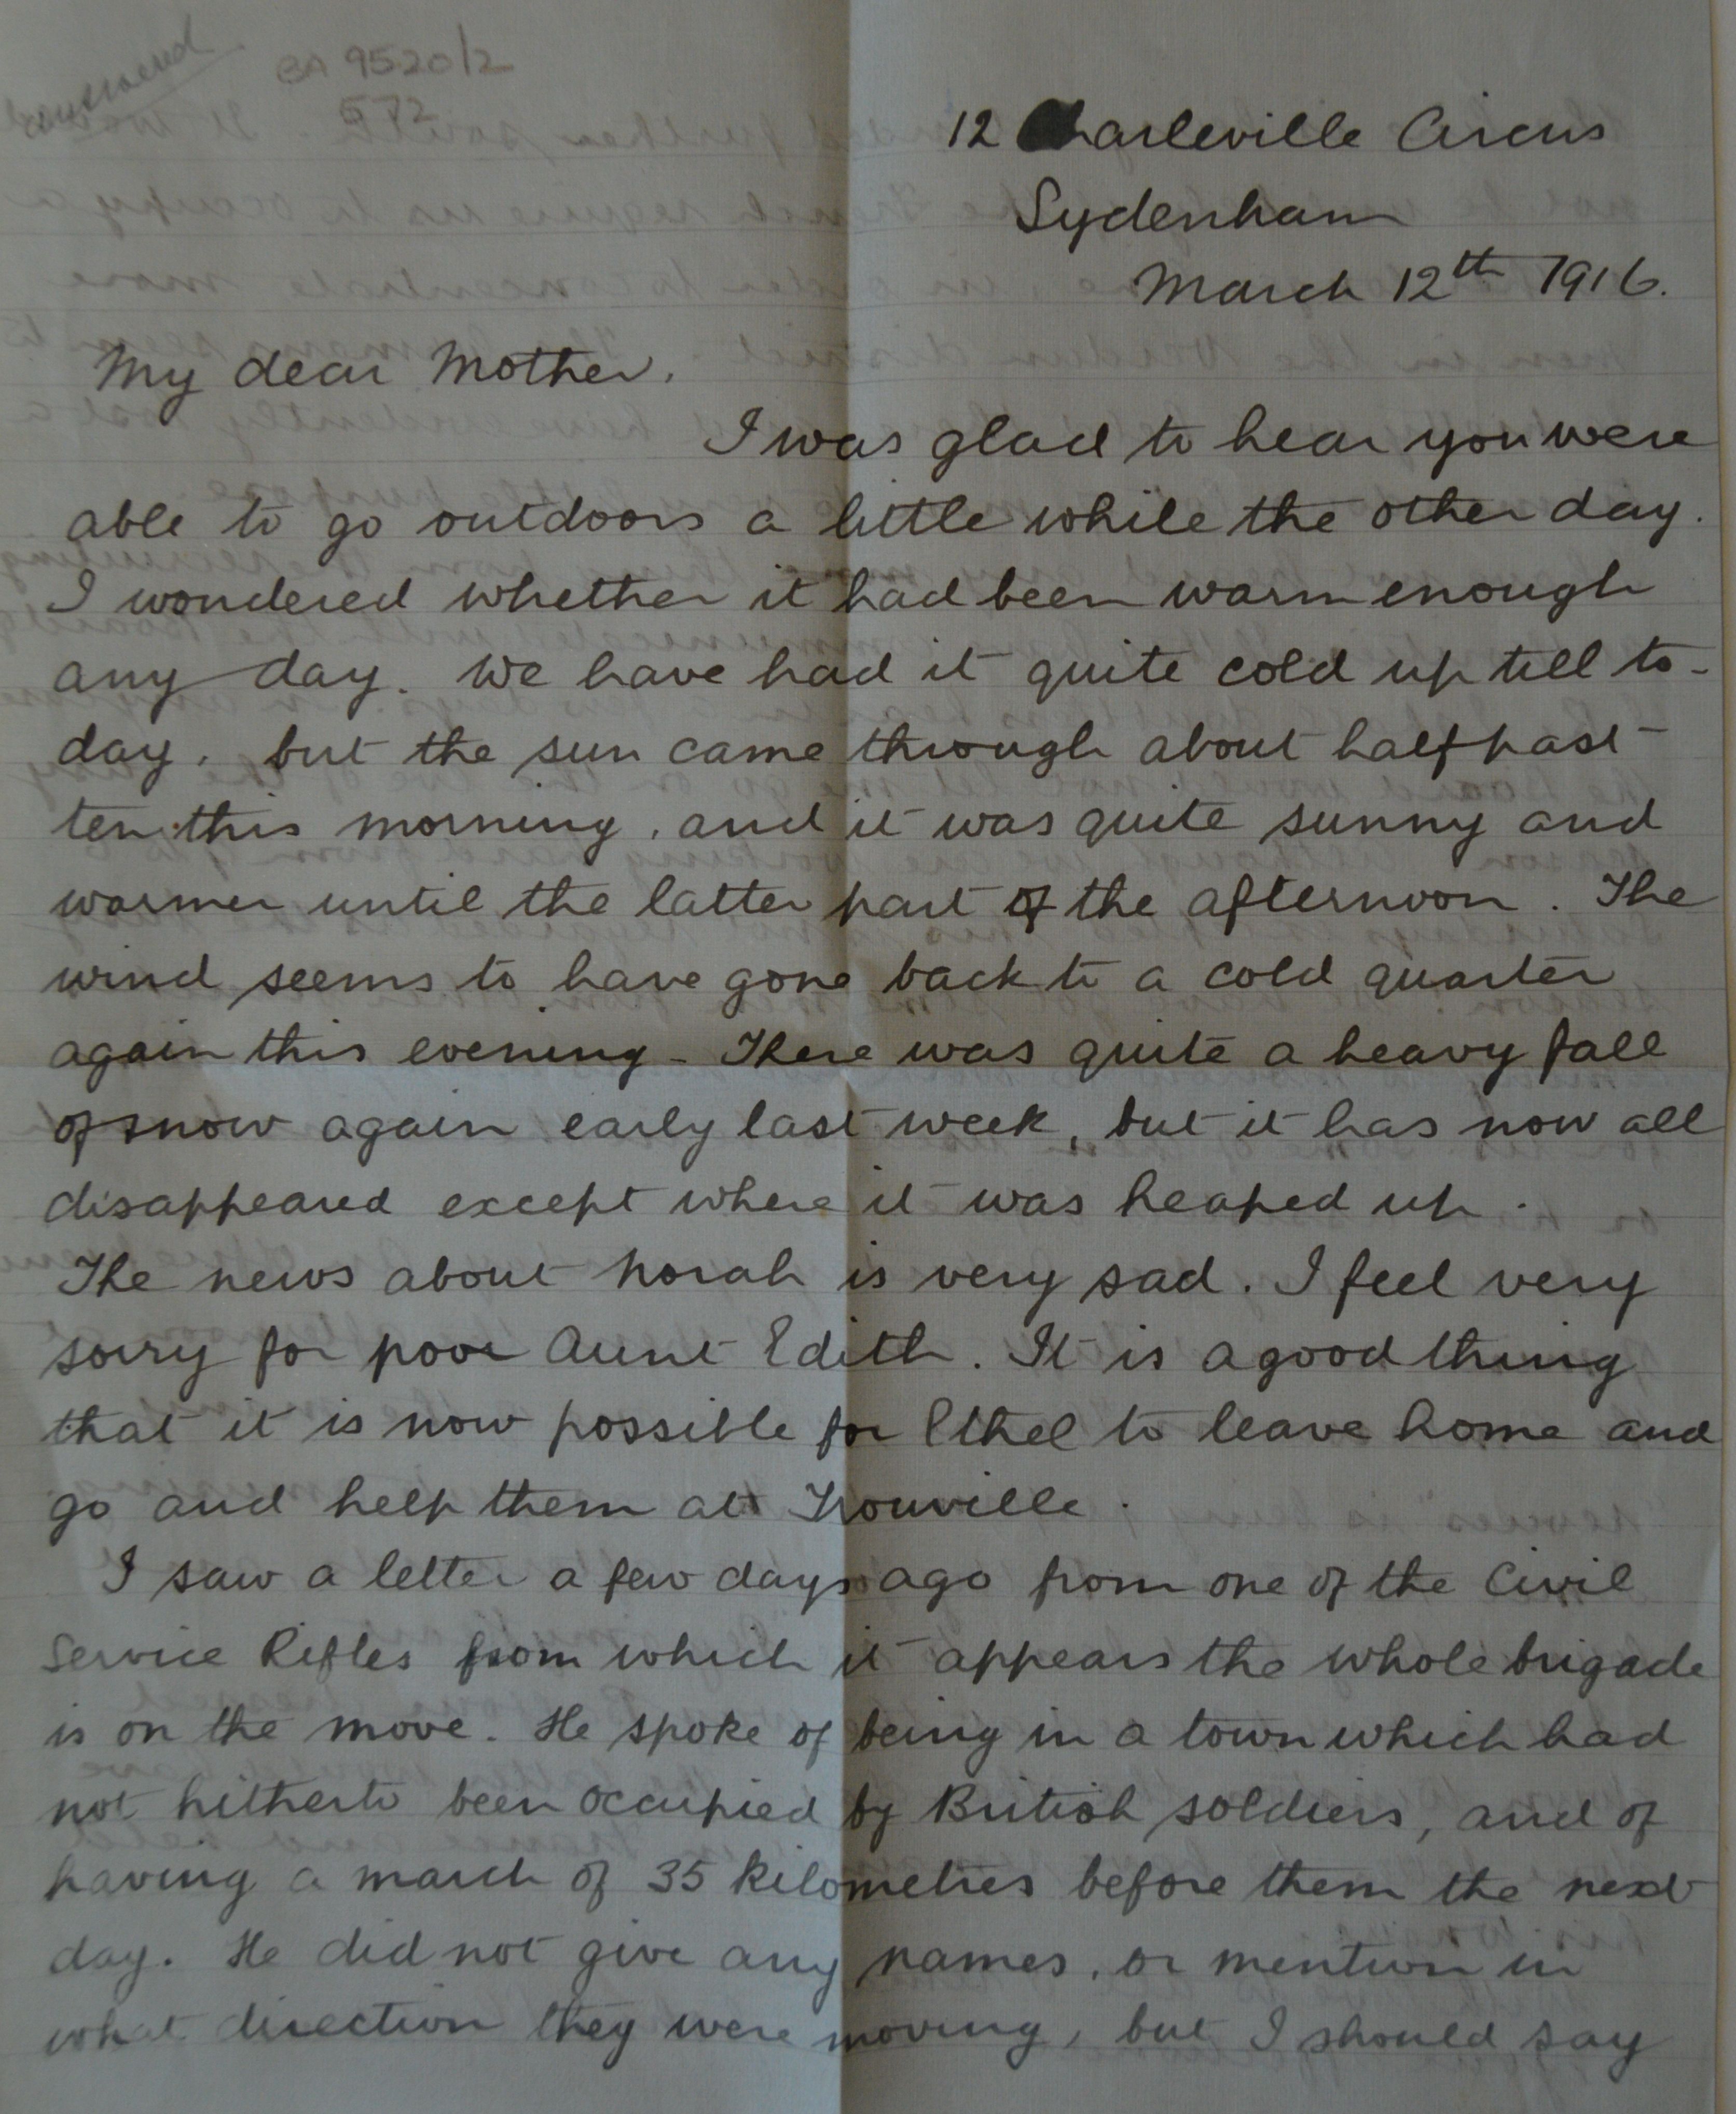 answered
BA 9520/2
572
12 Charleville Circus
Sydenham
March 12th 1916.
My dear Mother,
I was glad to hear you were
able to go outdoors a little while the other day.
I wondered whether it had been warm enough
any day. We have had it quite cold up till to-
day, but the sun came through about half past
ten this morning, and it was quite sunny and
warmer until the latter part of the afternoon. The
wind seems to have gone back to a cold quarter
again this evening - There was quite a heavy fall
of snow again early last week, but it has now all
disappeared except where it was heaped up.
The news about Norah is very sad. I feel very
sorry for poor Aunt Edith. It is a good thing
that it is now possible for Ethel to leave home and
go and help them at Trouville.
I saw a letter a few days ago from one of the Civil
Service Rifles from which it appears the whole brigade
is on the move. He spoke of being in a town which had
not hitherto been occupied by British soldiers, and of
having a march of 35 kilometres before them the next
day. He did not give any names, or mention in
what direction they were moving, but I should say